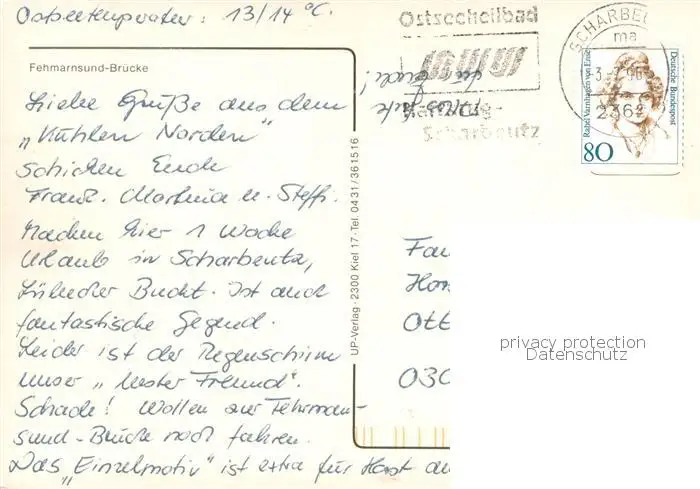 Ostseetemperatur: 13/14 °C.
Ostseeheilbad
SCHARBEU
Scharbeutz
2362
80
Rahel Varnhagen von Ense
Deutsche Bundespost
Fehmarnsund-Brücke
Liebe Grüße aus dem
„Kühlen Norden"
schicken Euch
Franz. Martina u. Steffi.
Machen hier 1 Woche
Urlaub in Scharbeutz,
Lübecker Bucht. Ist auch
fantastische Gegend.
Leider ist der Regenschirm
unser „bester Freund".
Schade! Wollen zur Fehrman-
sund-Brücke noch fahren.
Das „Einzelmotiv" ist extra für Horst
UP-Verlag · 2300 Kiel 17 · Tel. 0431/361516
Fam
Hor
Ott
030
privacy protection
Datenschutz